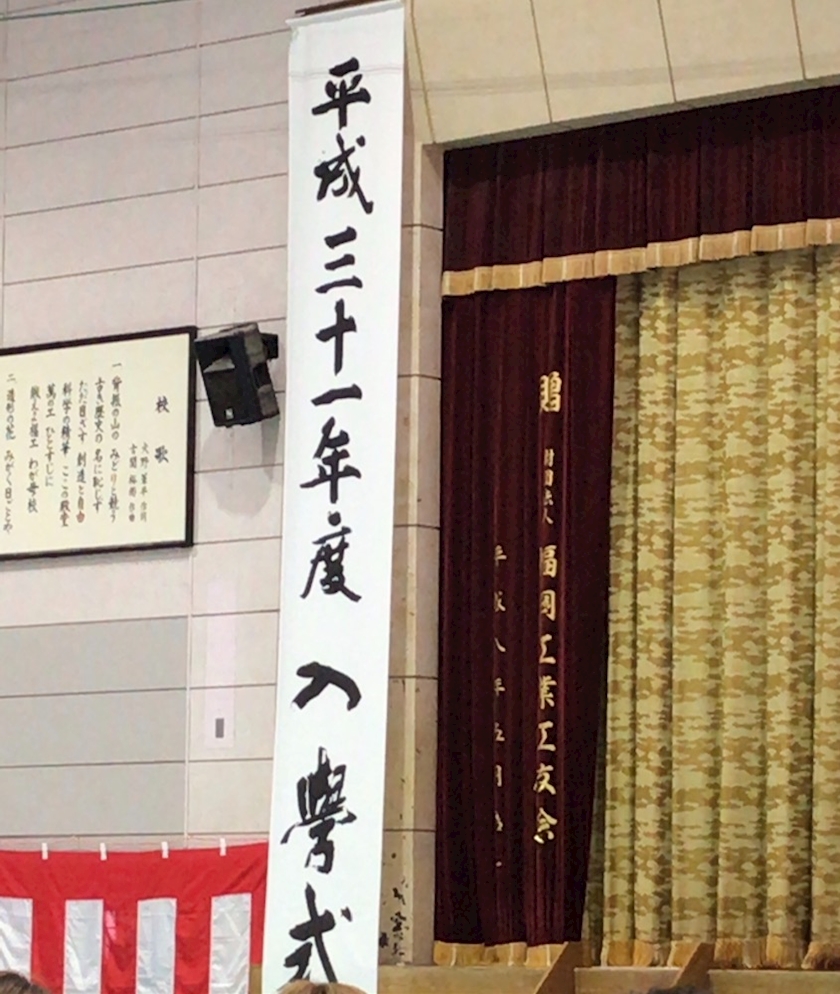 平成三十一年度 入學式
校歌
一 背振の山の みどりと競う
古き歴史の 名に恥じず
ただ目ざす 創造と自由
科学の精華 ここの殿堂
萬の工 ひとすじに
鍛える福工 わが母校
二 造形の花 みがく日ごとや
贈
財団法人 福岡工業工友会
平成八年五月